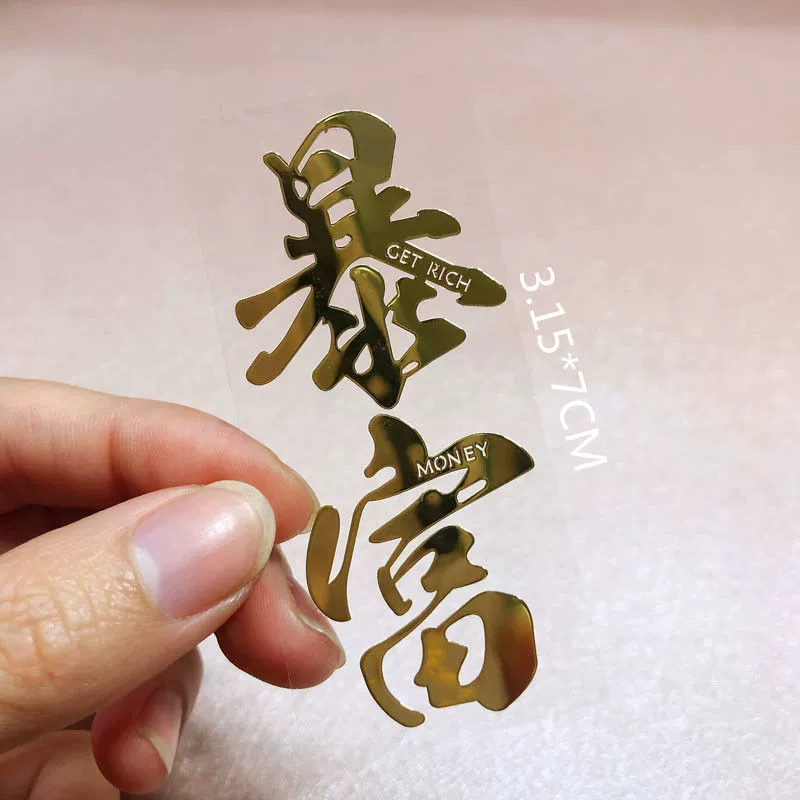 暴
GET RICH
富
MONEY
3.15*7CM